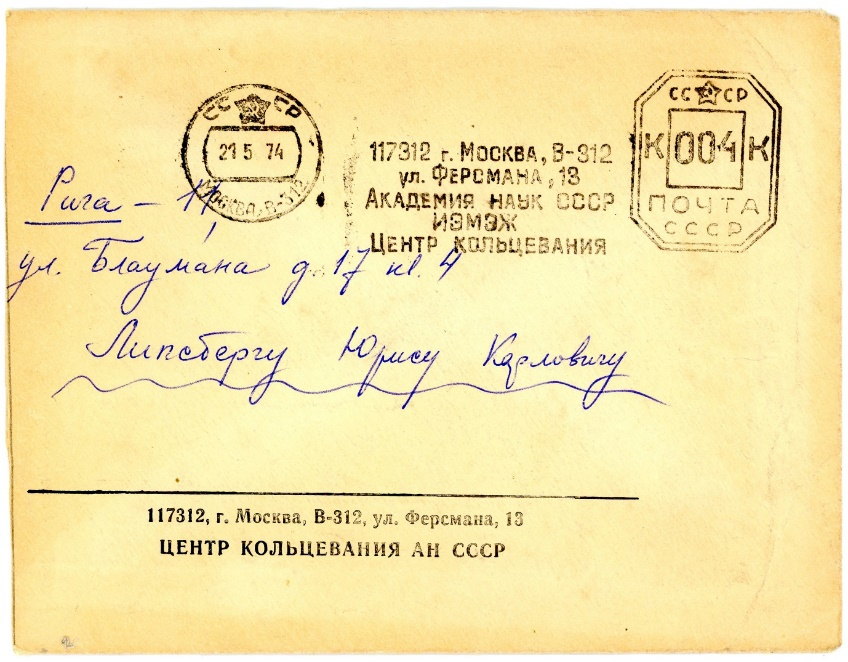 СССР
21 5 74
МОСКВА, В-312
117312 г. МОСКВА, В-312
ул. ФЕРСМАНА, 13
АКАДЕМИЯ НАУК СССР
ИЭМЭЖ
ЦЕНТР КОЛЬЦЕВАНИЯ
СССР
К 004 К
ПОЧТА
СССР
Рига - 11,
ул. Блаумана д. 17 кв. 4
Липсбергу Юрису Карловичу
117312, г. Москва, В-312, ул. Ферсмана, 13
ЦЕНТР КОЛЬЦЕВАНИЯ АН СССР